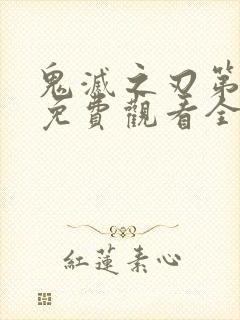 鬼滅之刃第
免費觀看全
紅蓮素心